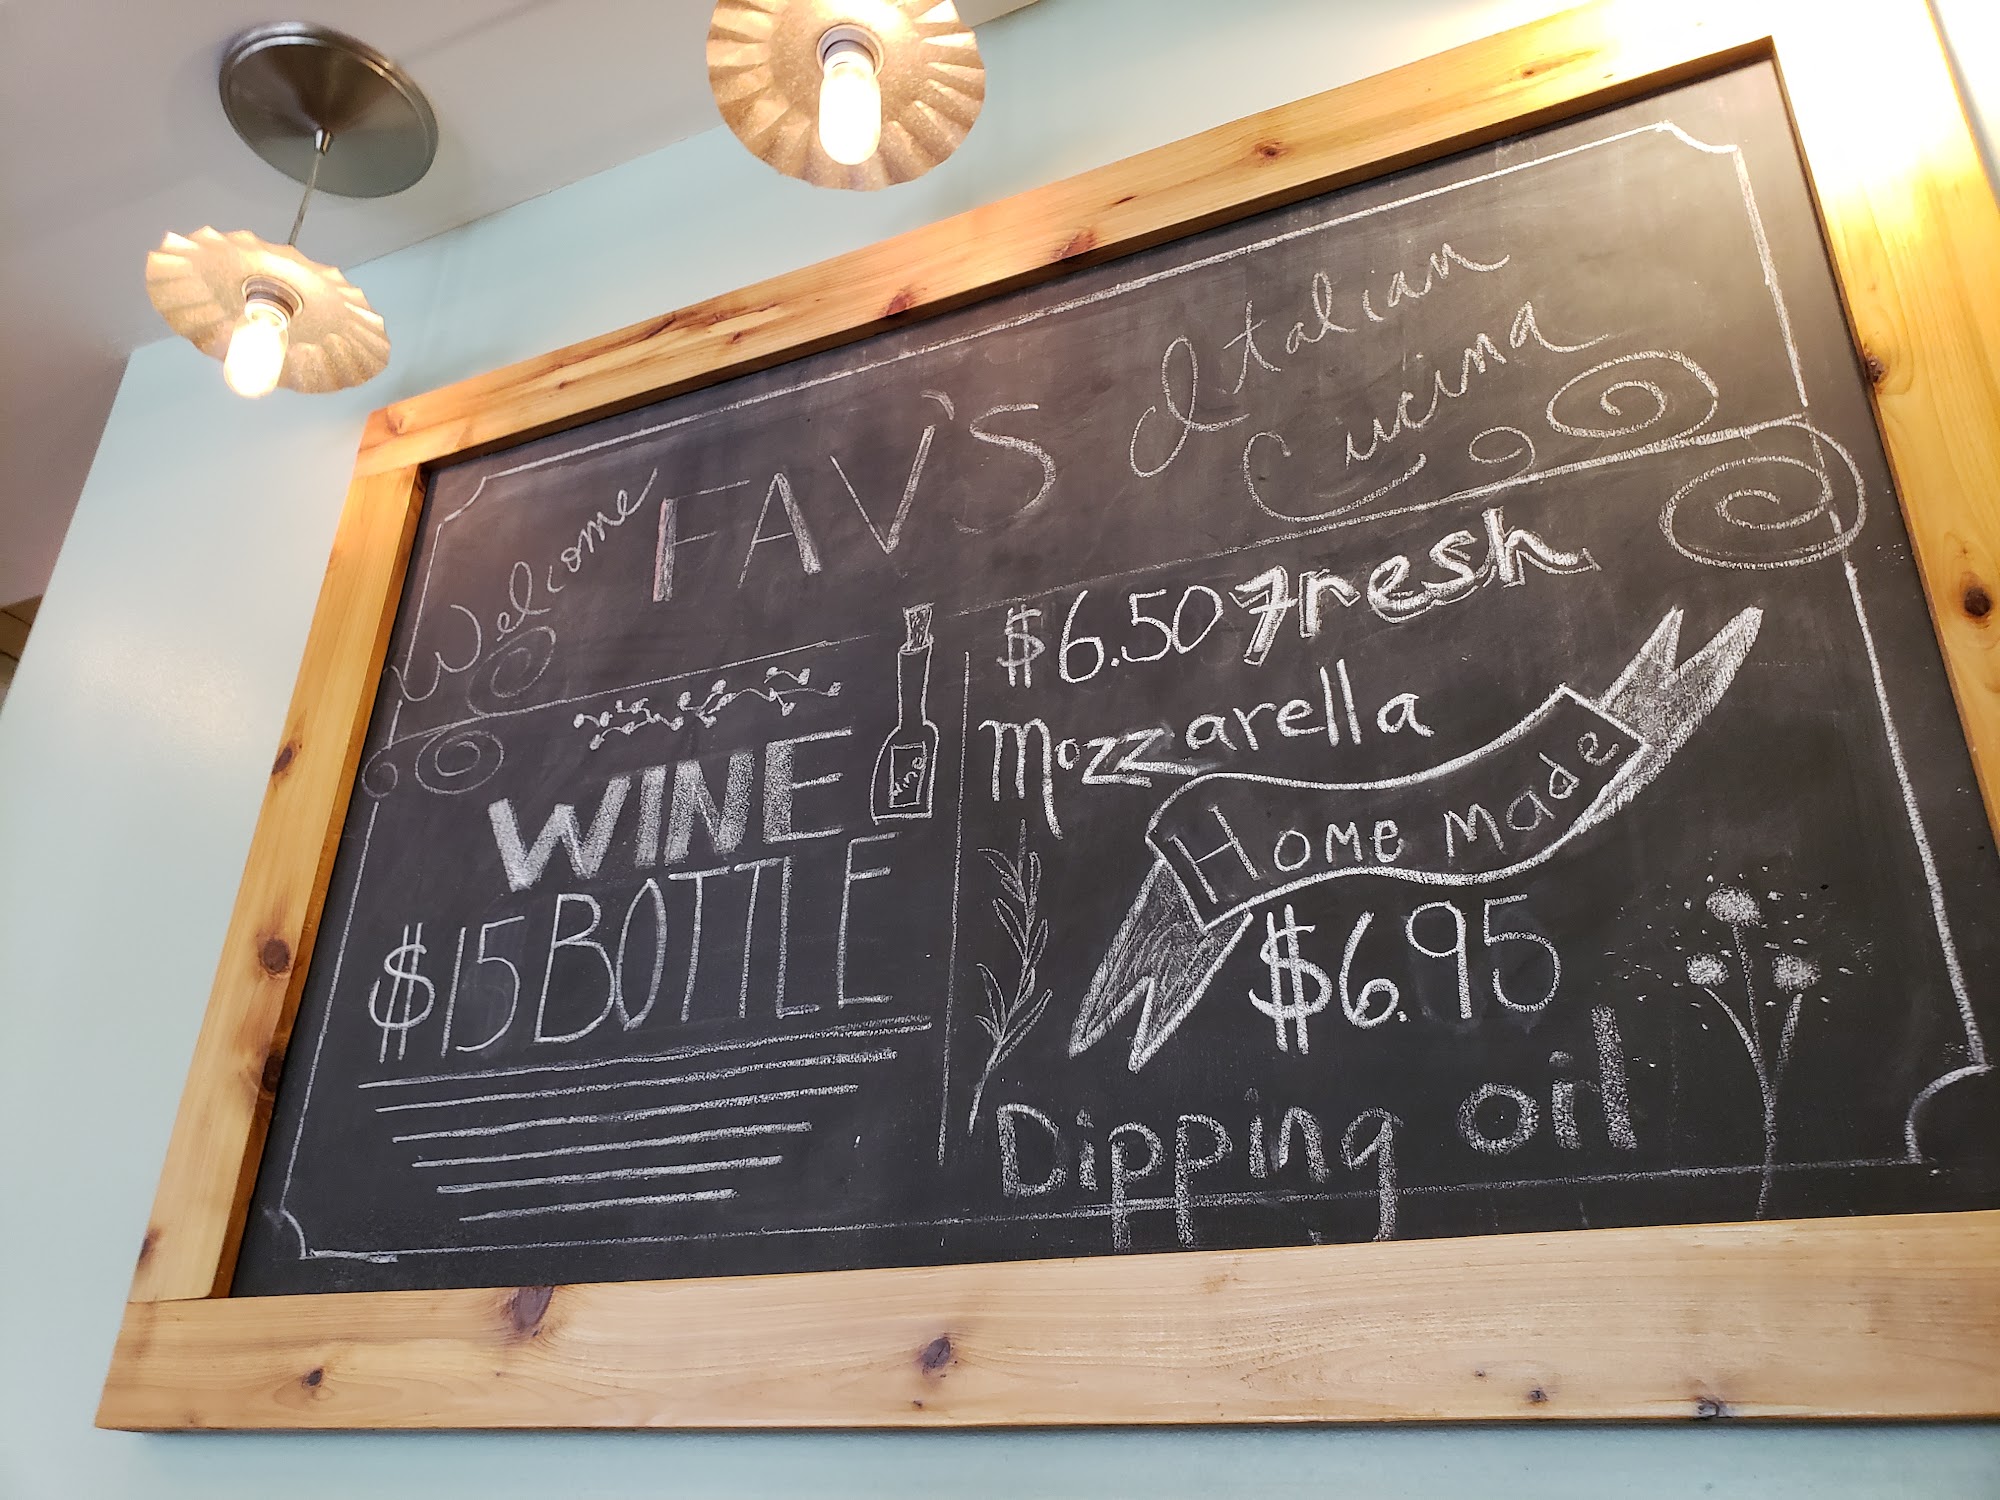 Welcome FAV'S Italian
Cucina
WINE
$15 BOTTLE
Wine
$6.50 Fresh
Mozzarella
Home made
$6.95
Dipping oil